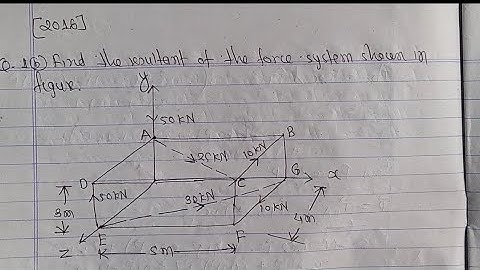 [2016]
Q.1(b) Find the resultant of the force system shown in
figure.
Y
50KN
A
B
20KN
10KN
D
C
G
x
50KN
30KN
3m
10KN
4m
Z
E
F
5m